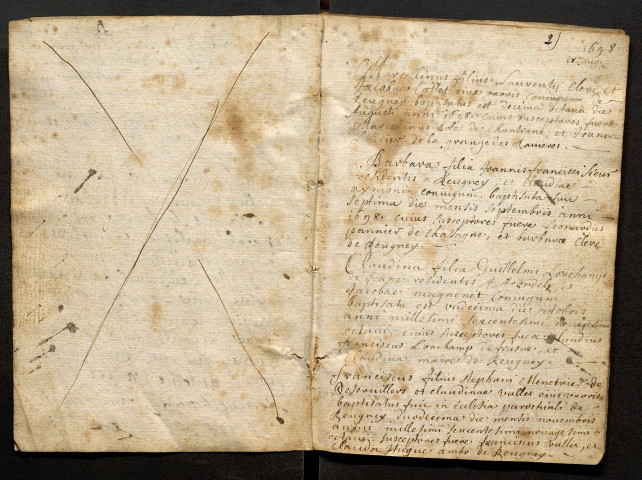 2)
1698
Marcellinus filius Laurentii Clerc et
Jacobae eius uxoris
Reugney baptisatus est decima octava die
Augusti anni 1698 cuius susceptores fuere
Marcellinus de Chantrans, et Joanna
de la grange des
Barbara filia Joannis francisci
residentis a Reugney, et claudiae
aymonin coniugum, baptisata fuit
septima die mensis septembris anni
1698. cuius susceptores fuere Leonardus
pannier de chassagne, et barbara Clerc
de Reugney.
Claudina filia Guillelmi Lonchamp
de residentis a et
Jacobae magnenet coniugum
baptisata est undecima die octobris
anni millesimi sexcentesimi nonagesimi
octavi, cuius susceptores fuere Claudius
franciscus Lonchamp de frasne, et
Claudina maire de Reugney.
franciscus filius stephani Demetrie de
Deservillers et claudinae vallet eius uxoris
baptisatus fuit in ecclesia parochiali de
Reugney duodecima die mensis novembris
anni millesimi sexcentesimi nonagesimi
octavi: susceptores fuere franciscus vallet, et
Claudia ambo de Reugney.